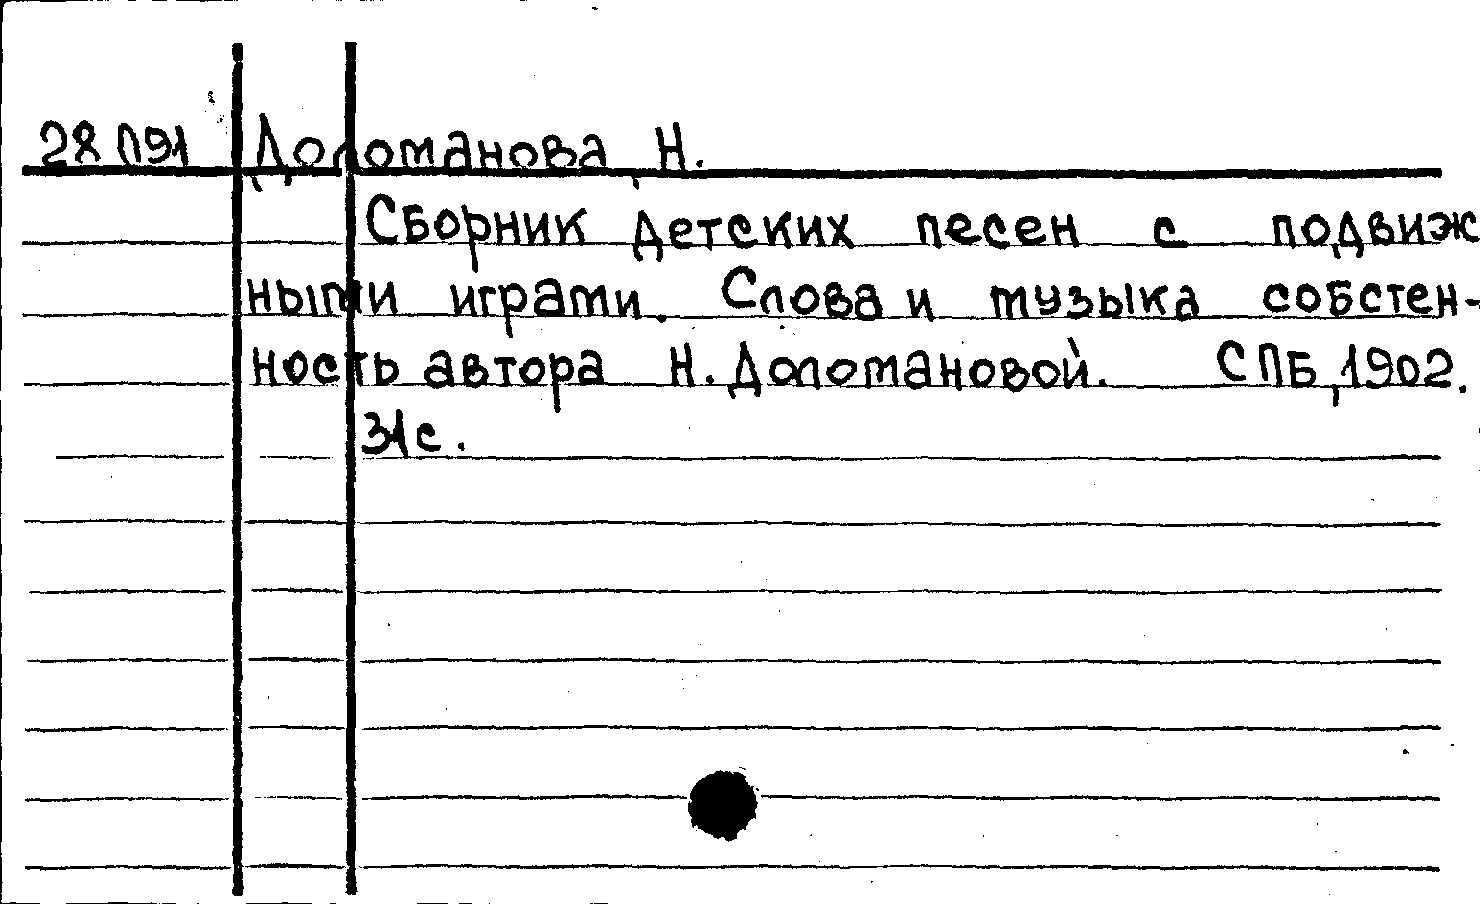 28 091 Доломанова Н.
Сборник детских песен с подвиж
ными играми. Слова и музыка собствен-
ность автора Н. Доломановой. СПБ, 1902.
31с.